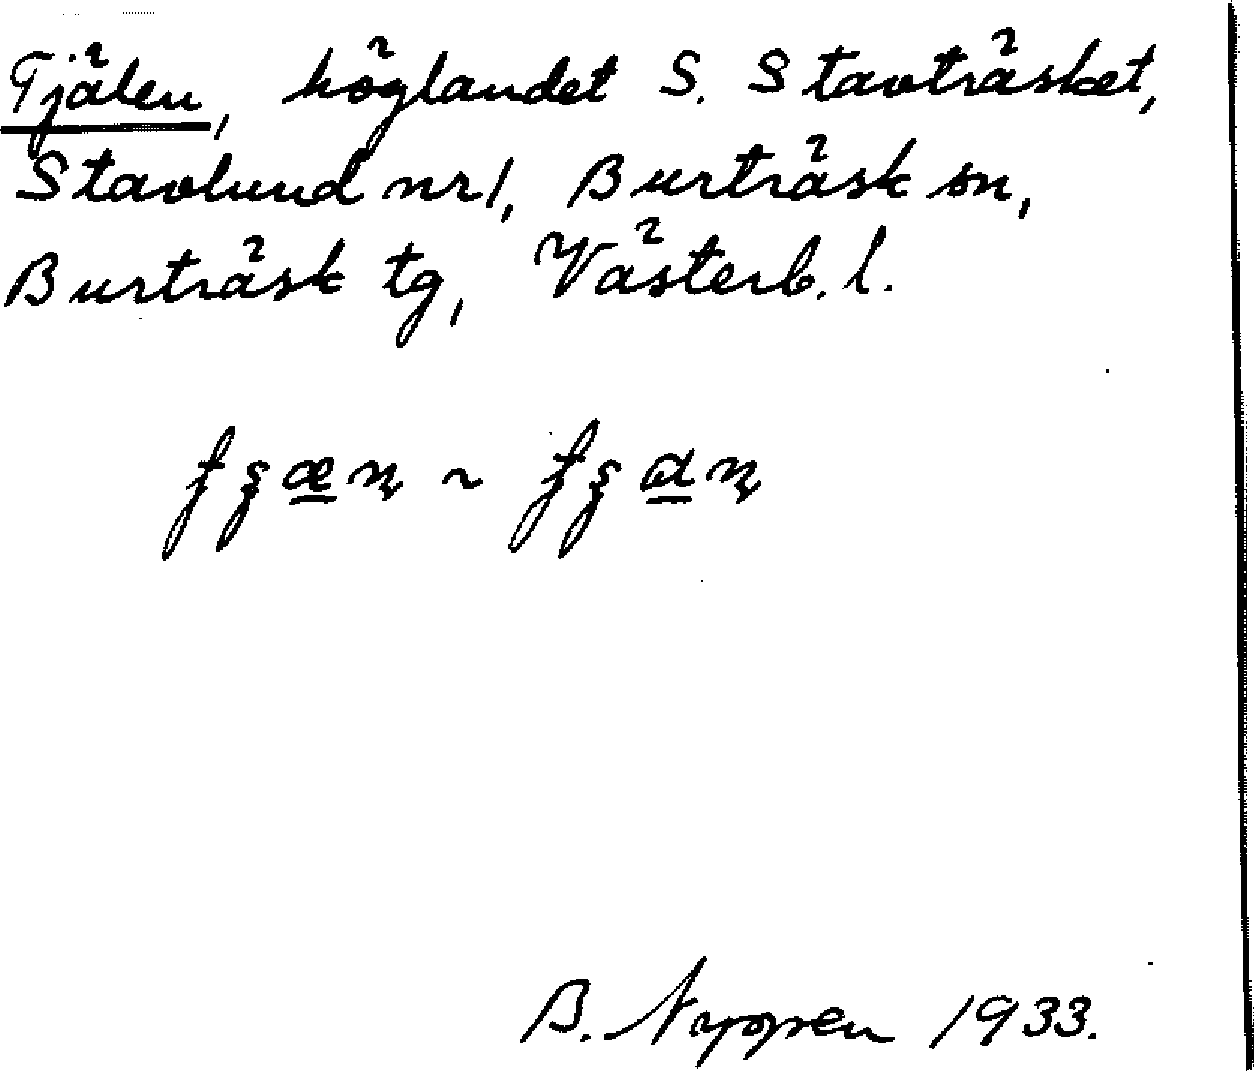 Tjälen, höglandet S. Stavträsket,
Stavlund nr 1, Burträsk sn,
Burträsk tg, Västerb. l.
B. 1933.